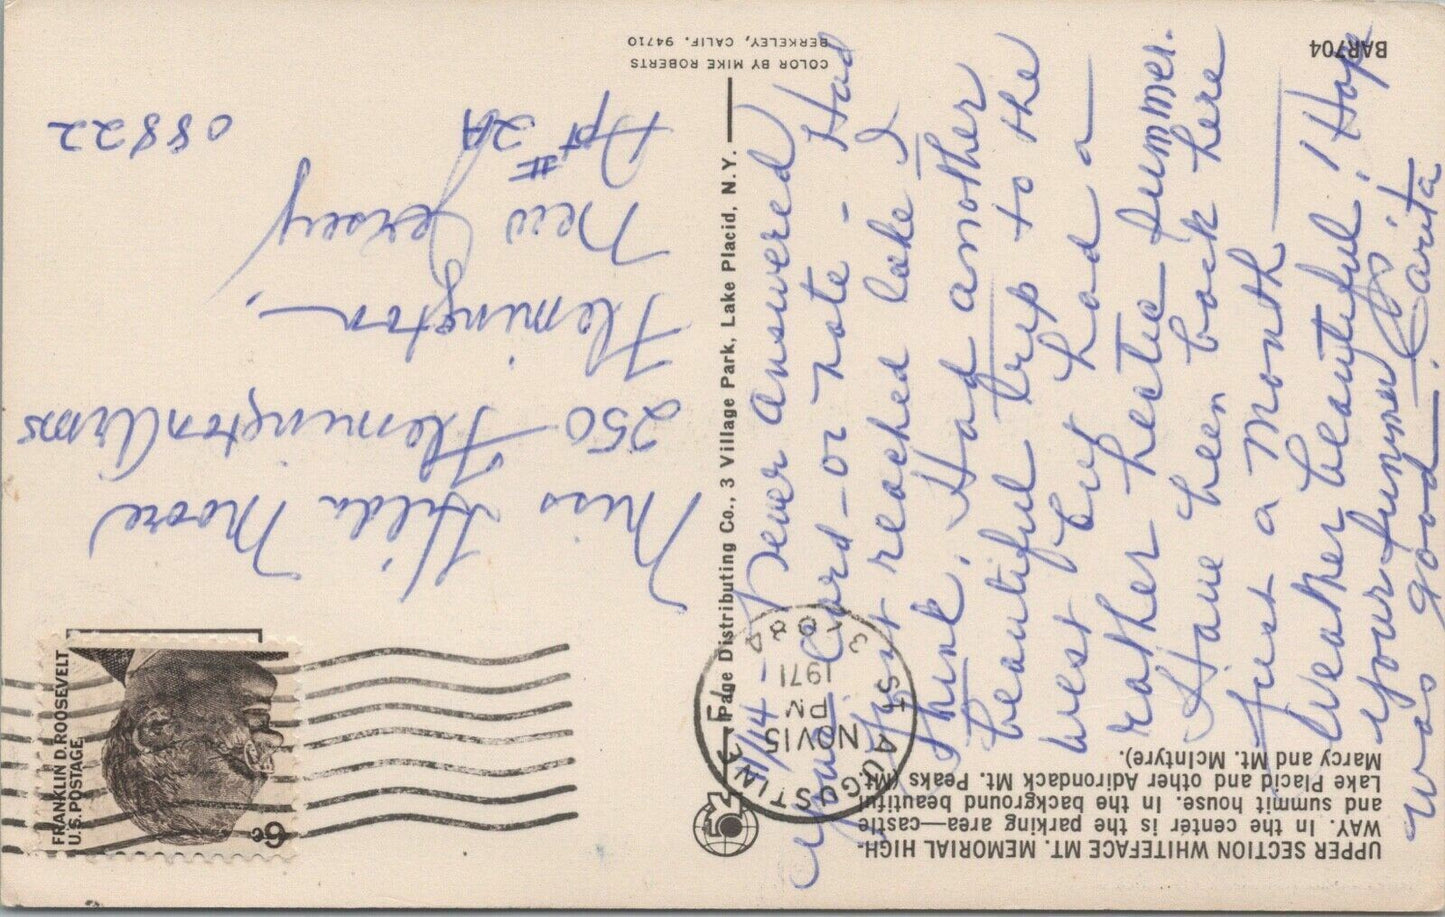 UPPER SECTION WHITEFACE MT. MEMORIAL HIGH-
WAY. In the center is the parking area—castle
and summit house. In the background beautiful
Lake Placid and other Adirondack Mt. Peaks (Mt.
Marcy and Mt. McIntyre).
BAR704
11/14 - Never answered
your Card - or note - Had
just reached Lake I
think. Had another
beautiful trip to the
west but had a
rather hectic summer.
Have been back here
just a month
Weather beautiful! Hope
your summer
was good - Carita
Page Distributing Co., 3 Village Park, Lake Placid, N.Y.
COLOR BY MIKE ROBERTS
BERKELEY, CALIF. 94710
ST. AUGUSTINE FL
PM
NOV 15
1971
FRANKLIN D. ROOSEVELT
U.S. POSTAGE
6c
Miss Hilda Moore
250 Flemington Arms
Flemington,
New Jersey
Apt # 2A
08822